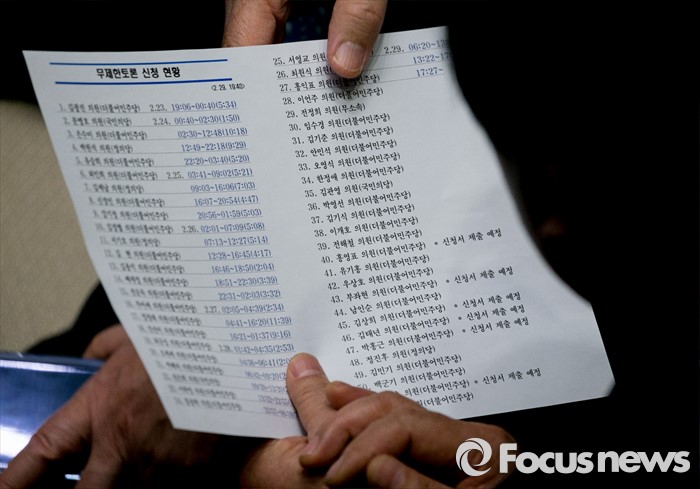 무제한토론 신청 현황
(2.29. 19:40)
1. 김광진 의원(더불어민주당) 2.23. 19:06~00:40(5:34)
2. 문병호 의원(국민의당) 2.24. 00:40~02:30(1:50)
3. 은수미 의원(더불어민주당) 02:30~12:48(10:18)
4. 박원석 의원(정의당) 12:49~22:18(9:29)
5. 유승희 의원(더불어민주당) 22:20~03:40(5:20)
6. 최민희 의원(더불어민주당) 2.25. 03:41~09:02(5:21)
7. 김제남 의원(정의당) 09:03~16:06(7:03)
8. 신경민 의원(더불어민주당) 16:07~20:54(4:47)
9. 강기정 의원(더불어민주당) 20:56~01:59(5:03)
10. 김경협 의원(더불어민주당) 2.26. 02:01~07:09(5:08)
11. 서기호 의원(정의당) 07:13~12:27(5:14)
12. 김 현 의원(더불어민주당) 12:28~16:45(4:17)
13. 김용익 의원(더불어민주당) 16:46~18:50(2:04)
14. 배재정 의원(더불어민주당) 18:51~22:30(3:39)
15. 전순옥 의원(더불어민주당) 22:31~02:03(3:32)
16. 의원(더불어민주당) 2.27. 02:05~04:39(2:34)
17. 정청래 의원(더불어민주당) 04:41~16:20(11:39)
18. 의원(더불어민주당) 16:21~01:37(9:16)
의원(더불어민주당) 2.28. 01:42~04:35(2:53)
의원(더불어민주당)
의원(더불어민주당)
의원(더불어민주당)
의원(더불어민주당)
의원(더불어민주당)
25. 서영교 의원(더불어민주당) 2.29. 06:20~
26. 최원식 의원(국민의당) 13:22~
27. 홍익표 의원(더불어민주당) 17:27~
28. 이언주 의원(더불어민주당)
29. 전정희 의원(무소속)
30. 임수경 의원(더불어민주당)
31. 김기준 의원(더불어민주당)
32. 안민석 의원(더불어민주당)
33. 오영식 의원(더불어민주당)
34. 한정애 의원(더불어민주당)
35. 김관영 의원(국민의당)
36. 박영선 의원(더불어민주당)
37. 김기식 의원(더불어민주당)
38. 이개호 의원(더불어민주당)
39. 전해철 의원(더불어민주당)
40. 홍영표 의원(더불어민주당) * 신청서 제출 예정
41. 유기홍 의원(더불어민주당)
42. 우상호 의원(더불어민주당)
43. 부좌현 의원(더불어민주당) * 신청서 제출 예정
44. 남인순 의원(더불어민주당)
45. 김상희 의원(더불어민주당) * 신청서 제출 예정
46. 김태년 의원(더불어민주당) * 신청서 제출 예정
47. 박홍근 의원(더불어민주당) * 신청서 제출 예정
48. 정진후 의원(정의당)
49. 김민기 의원(더불어민주당)
50. 백군기 의원(더불어민주당) * 신청서 제출 예정
의원(더불어민주당)
Focusnews